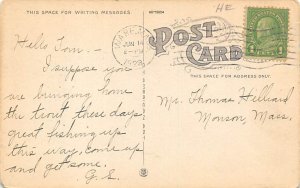 THIS SPACE FOR WRITING MESSAGES.
HE
POST CARD
THIS SPACE FOR ADDRESS ONLY.
Hello Tom—
I suppose you
are bringing home
the trout these days
great fishing up
this way, come up
and get some.
G. S.
JUN 14
Mr. Thomas Hilliard
Monson, Mass.